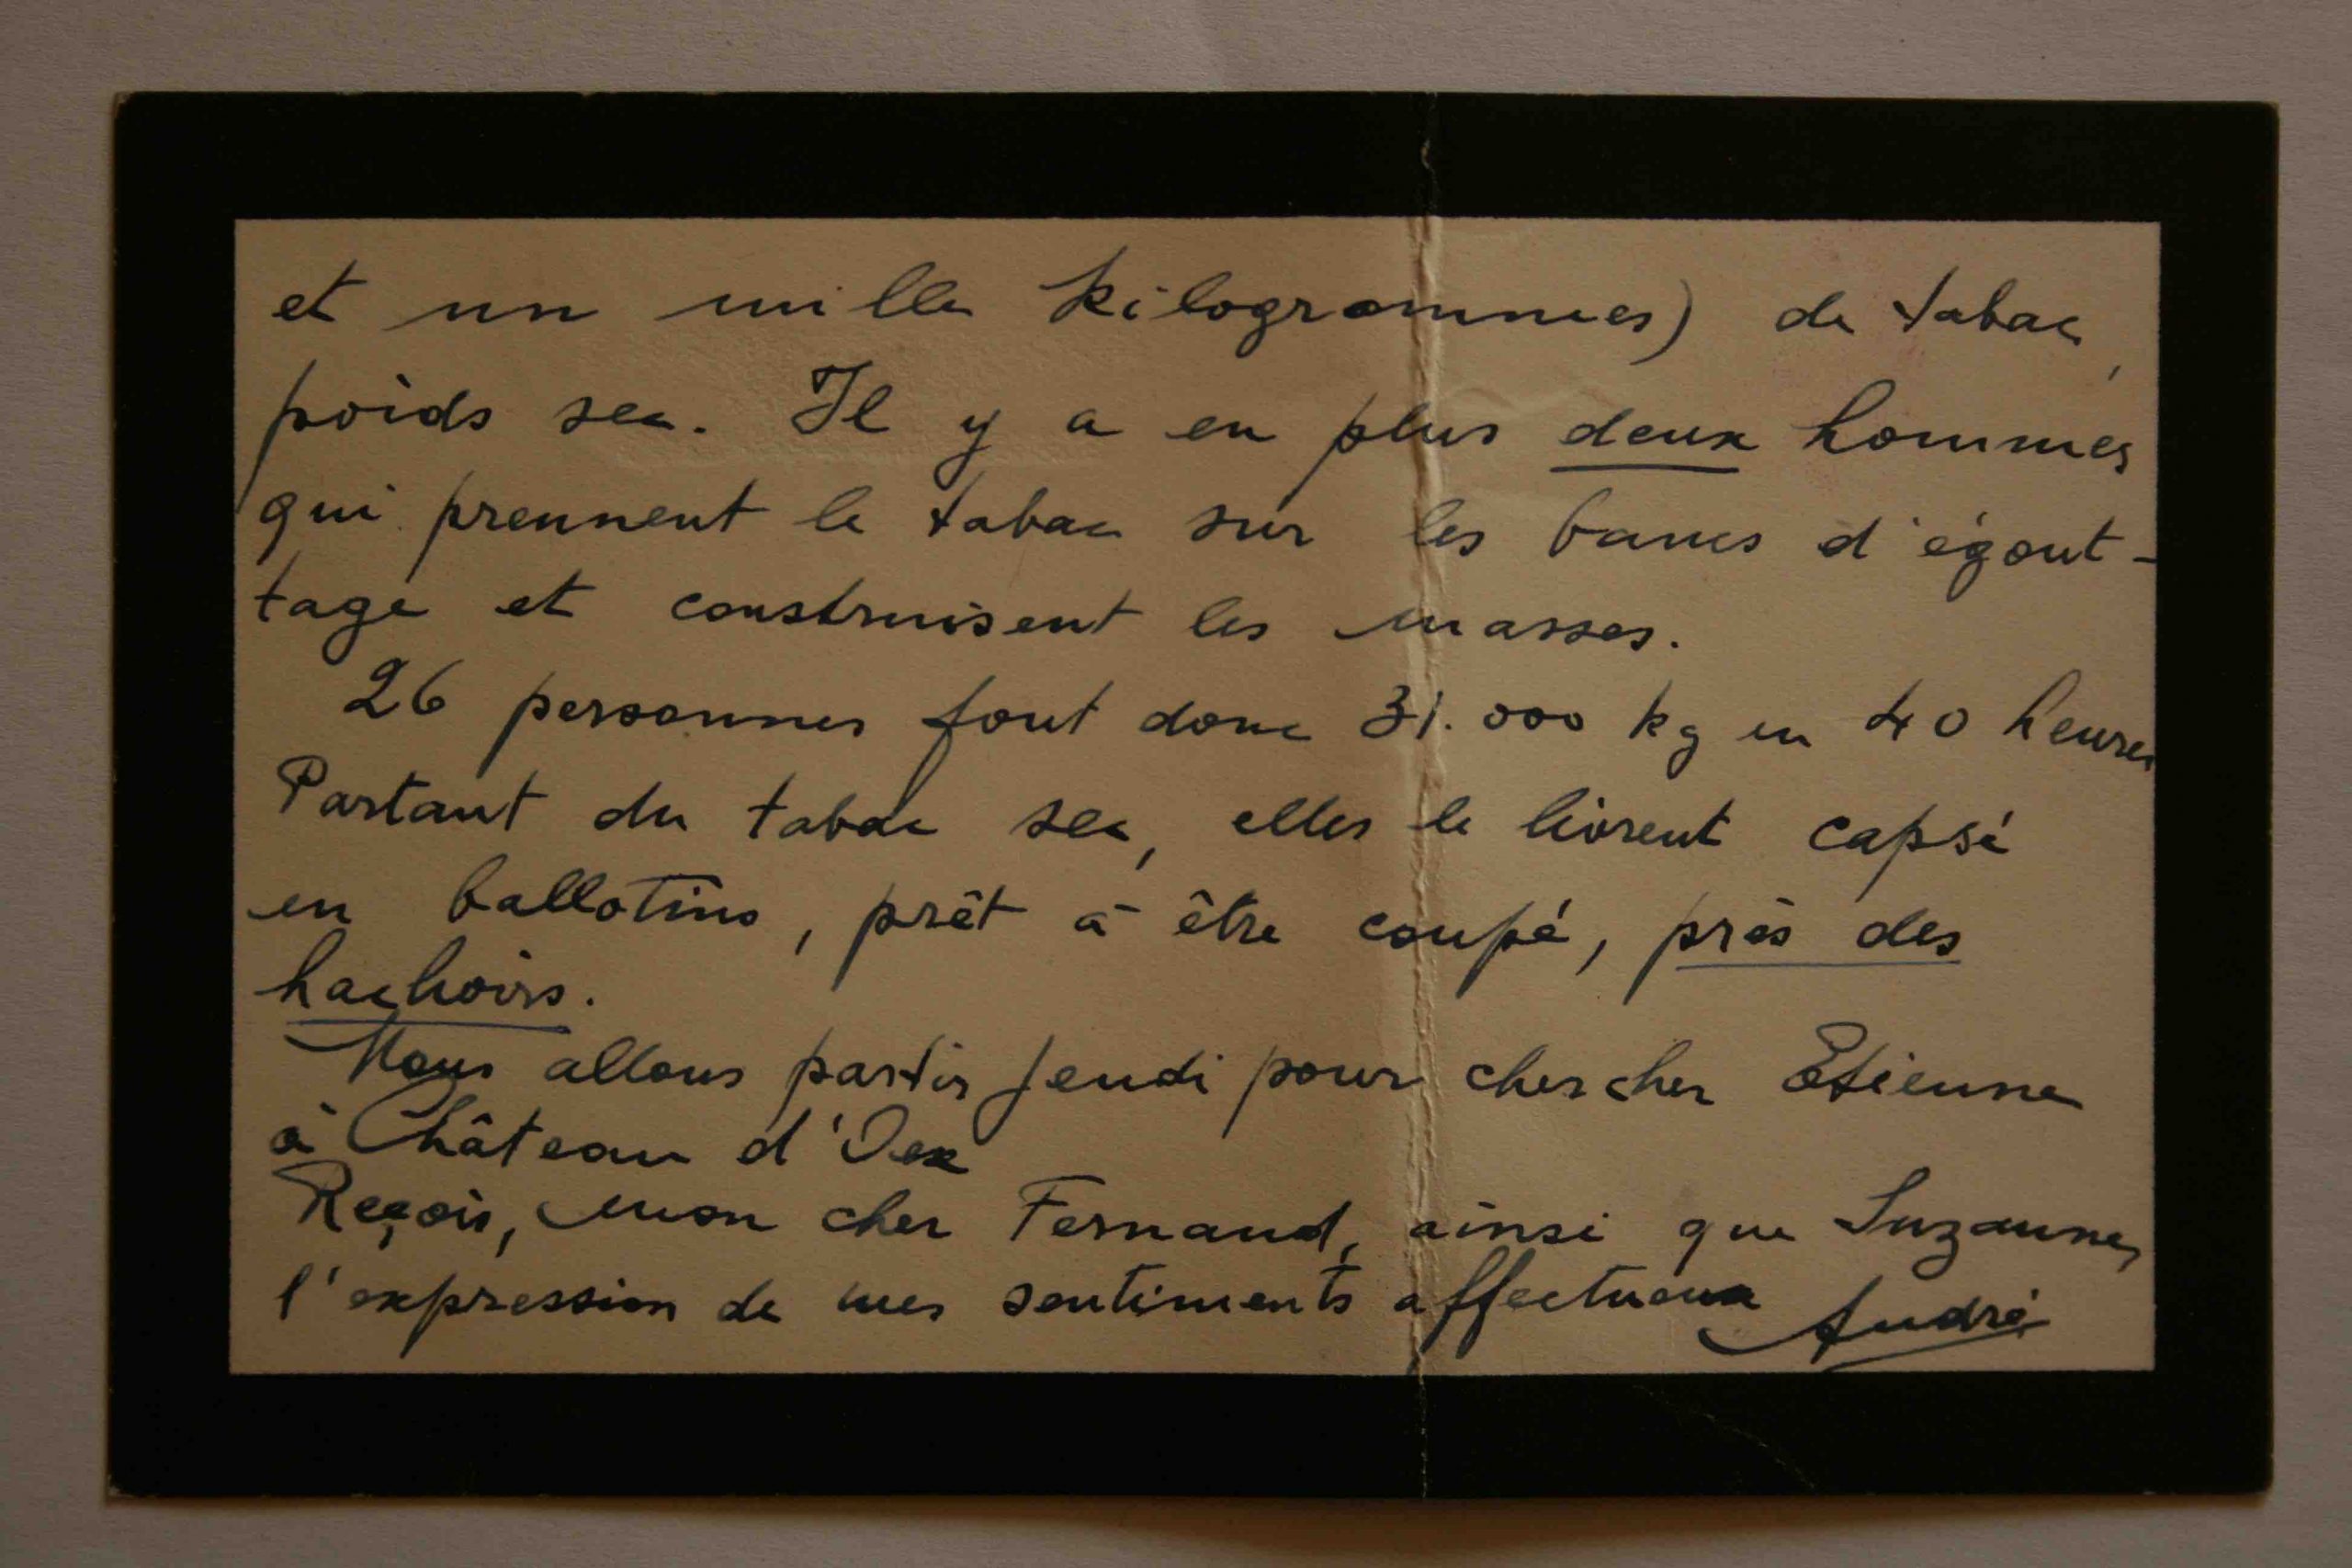 et un mille kilogrammes) de tabac,
poids sec. Il y a en plus deux hommes
qui prennent le tabac sur les bancs d'égout-
tage et construisent les masses.
26 personnes font donc 31.000 kg en 40 heures
Partant du tabac sec, elles le livrent capsé
en ballotins, prêt à être coupé, près des
hachoirs.
Nous allons partir Jeudi pour chercher Etienne
à Château d'Oex
Reçois, mon cher Fernand, ainsi que Suzanne,
l'expression de mes sentiments affectueux André